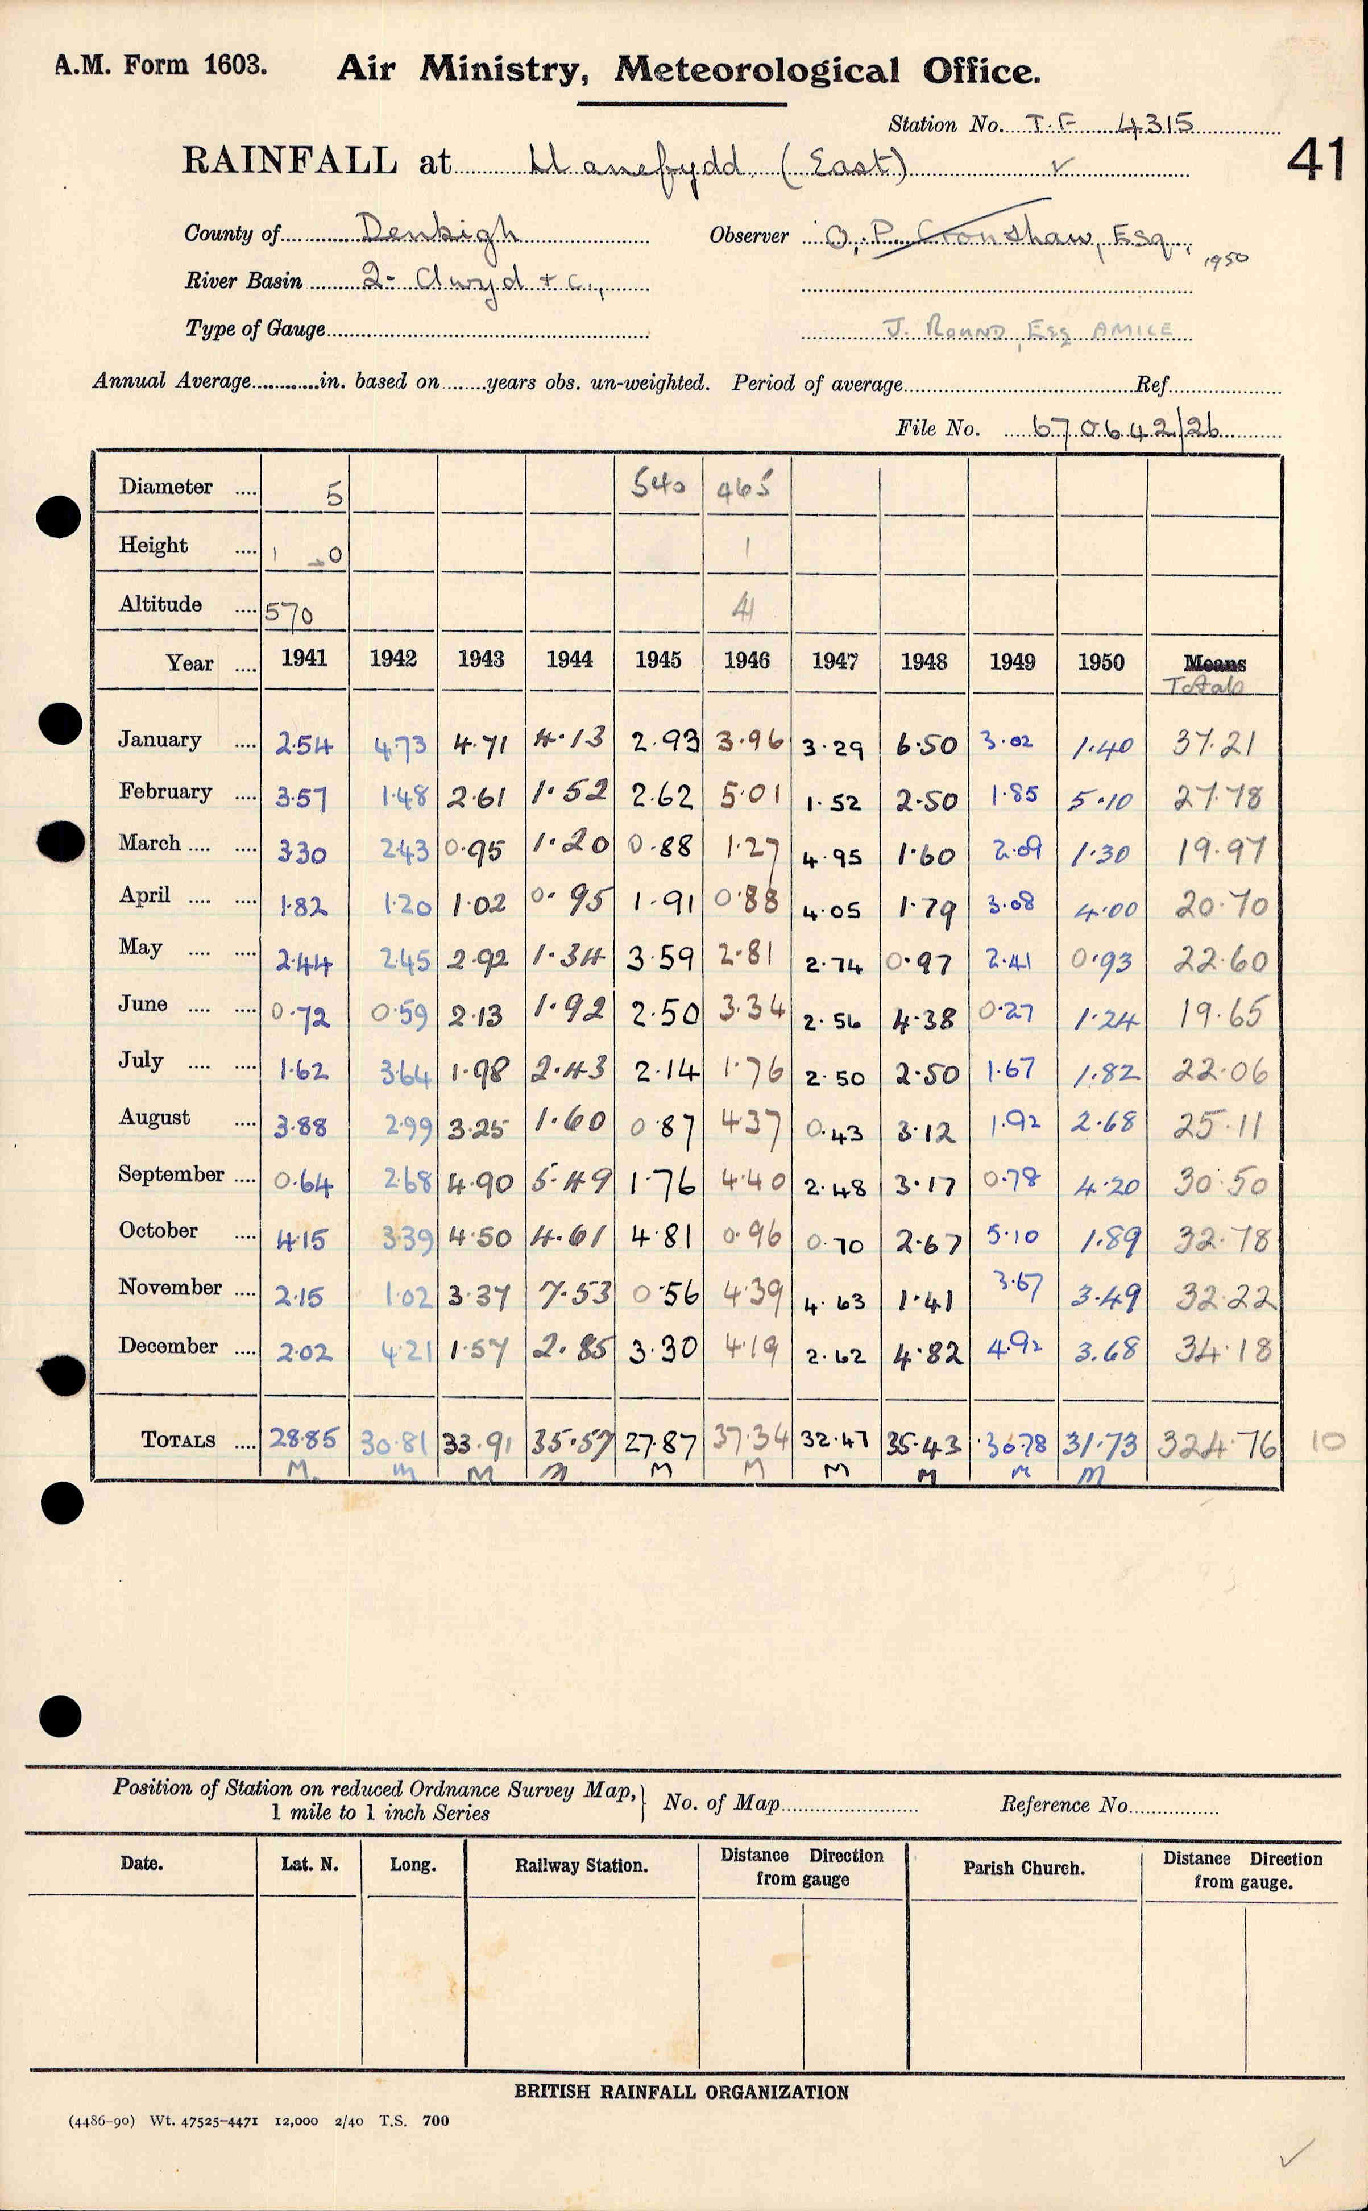 A.M. Form 1603. Air Ministry, Meteorological Office.
Station No. T.F 4315
41
RAINFALL at Llanefydd (East) ✓
County of Denbigh Observer O. P. Cronshaw, Esq., 1950
River Basin 2- Clwyd + c.,
Type of Gauge J. ROUND, Esq AMICE
Annual Average in. based on years obs. un-weighted. Period of average Ref.
File No. 670642/26
Diameter .... 5 540 465
Height .... 1 0 1
Altitude .... 570 41
Year .... 1941 1942 1943 1944 1945 1946 1947 1948 1949 1950 Means
Totals
January .... 2.54 4.73 4.71 4.13 2.93 3.96 3.29 6.50 3.02 1.40 37.21
February .... 3.57 1.48 2.61 1.52 2.62 5.01 1.52 2.50 1.85 5.10 27.78
March .... .... 3.30 2.43 0.95 1.20 0.88 1.27 4.95 1.60 2.09 1.30 19.97
April .... .... 1.82 1.20 1.02 0.95 1.91 0.88 4.05 1.79 3.08 4.00 20.70
May .... .... 2.44 2.45 2.92 1.34 3.59 2.81 2.74 0.97 2.41 0.93 22.60
June .... .... 0.72 0.59 2.13 1.92 2.50 3.34 2.56 4.38 0.27 1.24 19.65
July .... .... 1.62 3.64 1.98 2.43 2.14 1.76 2.50 2.50 1.67 1.82 22.06
August .... 3.88 2.99 3.25 1.60 0.87 4.37 0.43 3.12 1.92 2.68 25.11
September .... 0.64 2.68 4.90 5.49 1.76 4.40 2.48 3.17 0.78 4.20 30.50
October .... 4.15 3.39 4.50 4.61 4.81 0.96 0.70 2.67 5.10 1.89 32.78
November .... 2.15 1.02 3.37 7.53 0.56 4.39 4.63 1.41 3.67 3.49 32.22
December .... 2.02 4.21 1.57 2.85 3.30 4.19 2.62 4.82 4.92 3.68 34.18
TOTALS .... 28.85 30.81 33.91 35.57 27.87 37.34 32.47 35.43 30.78 31.73 324.76 10
M. M M M M M M M M M
Position of Station on reduced Ordnance Survey Map, 1 mile to 1 inch Series } No. of Map Reference No.
Date. Lat. N. Long. Railway Station. Distance Direction from gauge Parish Church. Distance Direction from gauge.
BRITISH RAINFALL ORGANIZATION
(4486-90) Wt. 47525-4471 12,000 2/40 T.S. 700
✓